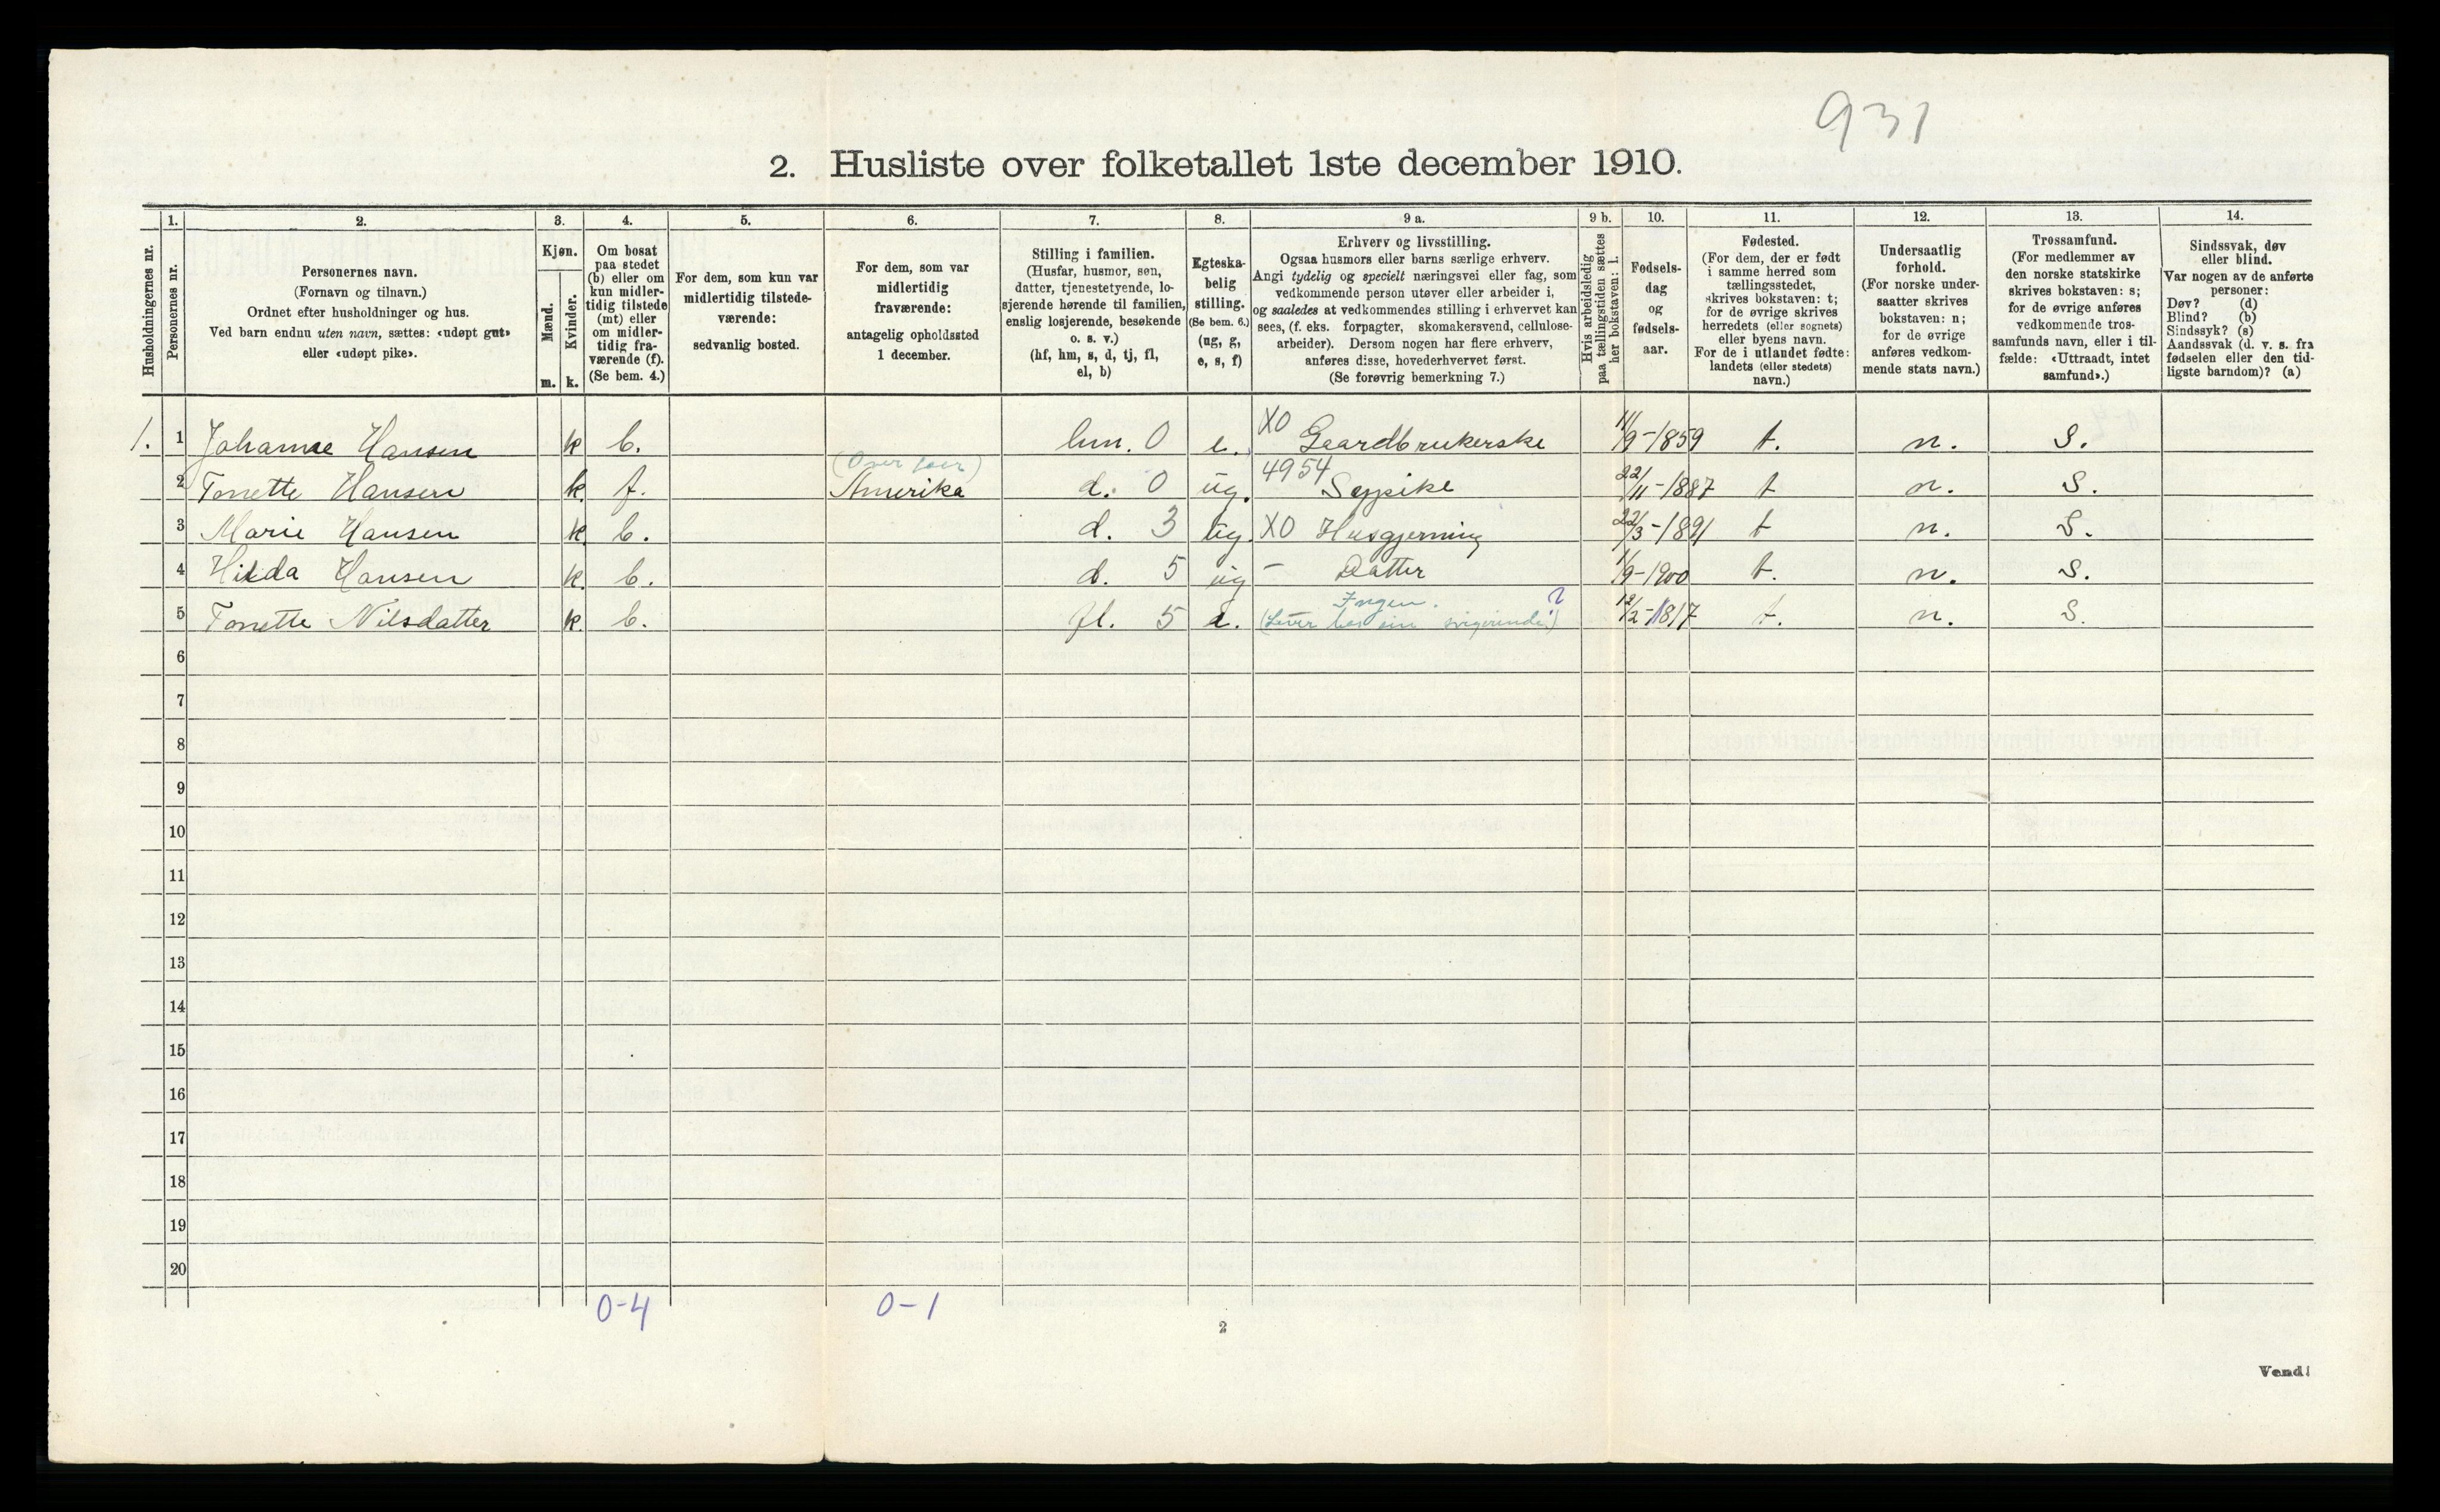 931
2. Husliste over folketallet 1ste december 1910.
Husholdningernes nr.
1.
Personernes nr.
2.
Personernes navn.
(Fornavn og tilnavn.)
Ordnet efter husholdninger og hus.
Ved barn endnu uten navn, sættes: «udøpt gut»
eller «udøpt pike».
3.
Kjøn.
Mænd.
Kvinder.
m. k.
4.
Om bosat
paa stedet
(b) eller om
kun midler-
tidig tilstede
(mt) eller
om midler-
tidig fra-
værende (f).
(Se bem. 4.)
5.
For dem, som kun var
midlertidig tilstede-
værende:
sedvanlig bosted.
6.
For dem, som var
midlertidig
fraværende:
antagelig opholdssted
1 december.
7.
Stilling i familien.
(Husfar, husmor, søn,
datter, tjenestetyende, lo-
sjerende hørende til familien,
enslig losjerende, besøkende
o. s. v.)
(hf, hm, s, d, tj, fl,
el, b)
8.
Egteska-
belig
stilling.
(Se bem. 6.)
(ug, g,
e, s, f)
9 a.
Erhverv og livsstilling.
Ogsaa husmors eller barns særlige erhverv.
Angi tydelig og specielt næringsvei eller fag, som
vedkommende person utøver eller arbeider i,
og saaledes at vedkommendes stilling i erhvervet kan
sees, (f. eks. forpagter, skomakersvend, cellulose-
arbeider). Dersom nogen har flere erhverv,
anføres disse, hovederhvervet først.
(Se forøvrig bemerkning 7.)
9 b.
Hvis arbeidsledig
paa tællingstiden sættes
her bokstaven: l.
10.
Fødsels-
dag
og
fødsels-
aar.
11.
Fødested.
(For dem, der er født
i samme herred som
tællingsstedet,
skrives bokstaven: t;
for de øvrige skrives
herredets (eller sognets)
eller byens navn.
For de i utlandet fødte:
landets (eller stedets)
navn.)
12.
Undersaatlig
forhold.
(For norske under-
saatter skrives
bokstaven: n;
for de øvrige
anføres vedkom-
mende stats navn.)
13.
Trossamfund.
(For medlemmer av
den norske statskirke
skrives bokstaven: s;
for de øvrige anføres
vedkommende tros-
samfunds navn, eller i til-
fælde: «Uttraadt, intet
samfund».)
14.
Sindssvak, døv
eller blind.
Var nogen av de anførte
personer:
Døv? (d)
Blind? (b)
Sindssyk? (s)
Aandssvak (d. v. s. fra
fødselen eller den tid-
ligste barndom)? (a)
1. 1 Johanne Hansen k b. hm. 0 e. X0 Gaardbrukerske 11/9-1859 t. n. S.
2 Tonette Hansen k. f. Amerika d. 0 ug. 4954 Sypike 22/11-1887 t n. S.
3 Marie Hansen k. b. d. 3 ug. X0 Husgjerning 22/3-1891 t n. S.
4 Hilda Hansen k. b. d. 5 ug - Datter 1/9-1900 t. n. S.
5 Tonette Nilsdatter k. b. fl. 5 e. Ingen. (Lever hos sin svigerinde) 12/2-1817 t. n. S.
6
7
8
9
10
11
12
13
14
15
16
17
18
19
20
0-4 0-1
2
Vend!